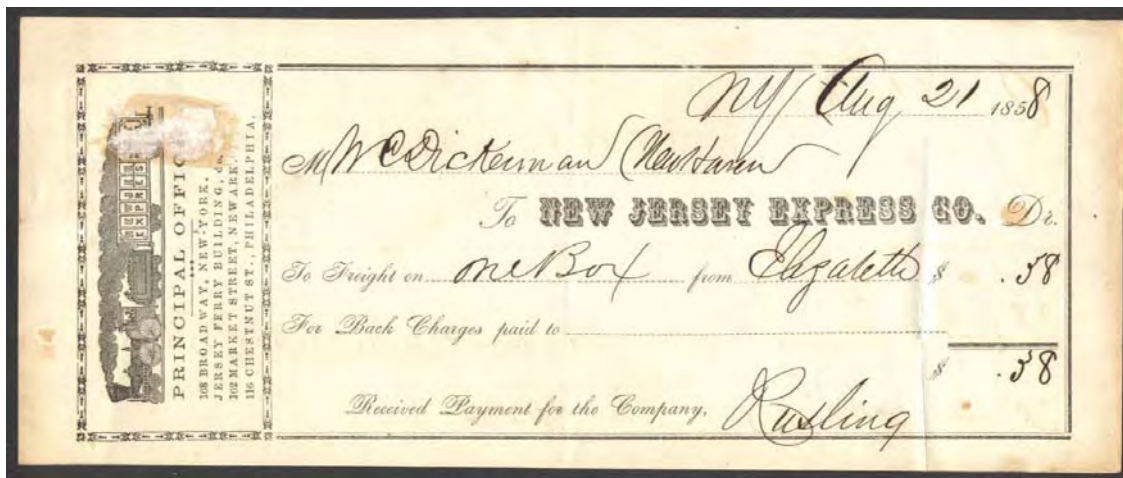 NEW JERSEY EXPRESS
PRINCIPAL OFFIC
168 BROADWAY, NEW-YORK.
JERSEY FERRY BUILDING, do.
102 MARKET STREET, NEWARK.
116 CHESTNUT ST., PHILADELPHIA.
NY Aug 21 1858
M W C Dickerman New Haven
To NEW JERSEY EXPRESS CO. Dr.
To Freight on one Box from Elizabeth $ .58
For Back Charges paid to
$ .58
Received Payment for the Company, Rusling